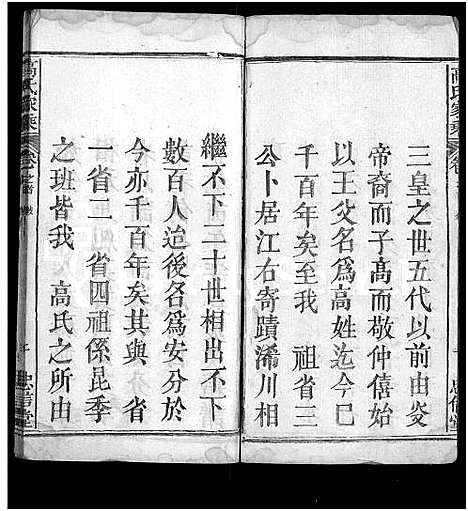 三皇之世五代以前由炎
帝裔而子高而敬仲僖始
以王父名爲高姓迄今已
千百年矣至我 祖省三
公卜居江右寄蹟浠川相
繼不下二十世相出不下
數百人迨後名爲安分於
今亦千百年矣其與 分 省
一省二 省四祖係昆季
之班皆我 高氏之所由
高氏家乘
卷之首
忠信堂
高氏家乘
忠信堂